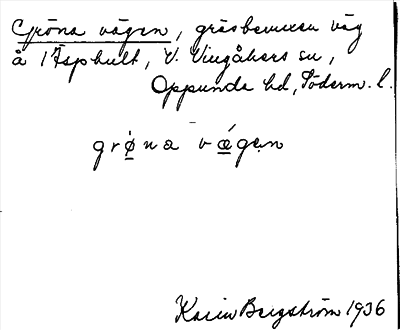 Gröna vägen, gräsbevuxen väg
å Äsphult, V. Vingåkers sn,
Oppunda hd, Söderm. l.
grö̱na vǽ̱gen
Karin Bergström 1936